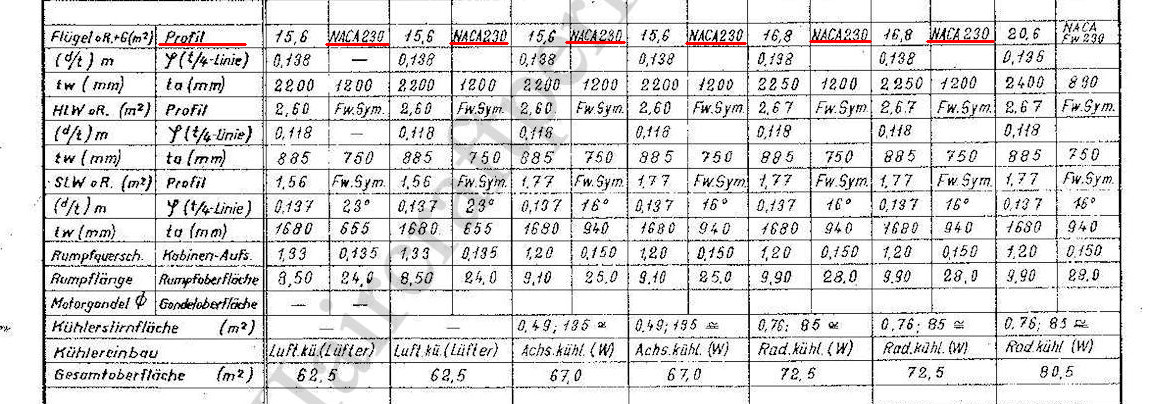 Flügel oR.+G(m²) Profil 15,6 NACA230 15,6 NACA230 15,6 NACA230 15,6 NACA230 16,8 NACA230 16,8 NACA230 20,6 NACA Fw.230
(d/t) m φ(t/4-Linie) 0,138 — 0,138 0,138 0,138 0,138 0,138 0,136
tw (mm) ta (mm) 2200 1200 2200 1200 2200 1200 2200 1200 2250 1200 2250 1200 2400 890
HLW oR. (m²) Profil 2,60 Fw.Sym. 2,60 Fw.Sym. 2,60 Fw.Sym. 2,60 Fw.Sym. 2,67 Fw.Sym. 2,67 Fw.Sym. 2,67 Fw.Sym.
(d/t) m φ(t/4-Linie) 0,118 — 0,118 0,118 0,118 0,118 0,118 0,118
tw (mm) ta (mm) 885 750 885 750 885 750 885 750 885 750 885 750 885 750
SLW oR. (m²) Profil 1,56 Fw.Sym. 1,56 Fw.Sym. 1,77 Fw.Sym. 1,77 Fw.Sym. 1,77 Fw.Sym. 1,77 Fw.Sym. 1,77 Fw.Sym.
(d/t) m φ(t/4-Linie) 0,137 23° 0,137 23° 0,137 16° 0,137 16° 0,137 16° 0,137 16° 0,137 16°
tw (mm) ta (mm) 1680 655 1680 655 1680 940 1680 940 1680 940 1680 940 1680 940
Rumpfquersch. Kabinen-Aufs. 1,33 0,135 1,33 0,135 1,20 0,150 1,20 0,150 1,20 0,150 1,20 0,150 1,20 0,150
Rumpflänge Rumpfoberfläche 8,50 24,0 8,50 24,0 9,10 25,0 9,10 25,0 9,90 28,0 9,90 28,0 9,90 29,0
Motorgondel ϕ Gondeloberfläche — —
Kühlerstirnfläche (m²) — — 0,49; 135 ≃ 0,49; 135 ≃ 0,76; 85 ≃ 0,76; 85 ≃ 0,76; 85 ≃
Kühlereinbau Luft.kü.(Lüfter) Luft.kü.(Lüfter) Achs.kühl. (W) Achs.kühl. (W) Rad.kühl. (W) Rad.kühl. (W) Rad.kühl. (W)
Gesamtoberfläche (m²) 62,5 62,5 67,0 67,0 72,5 72,5 80,5